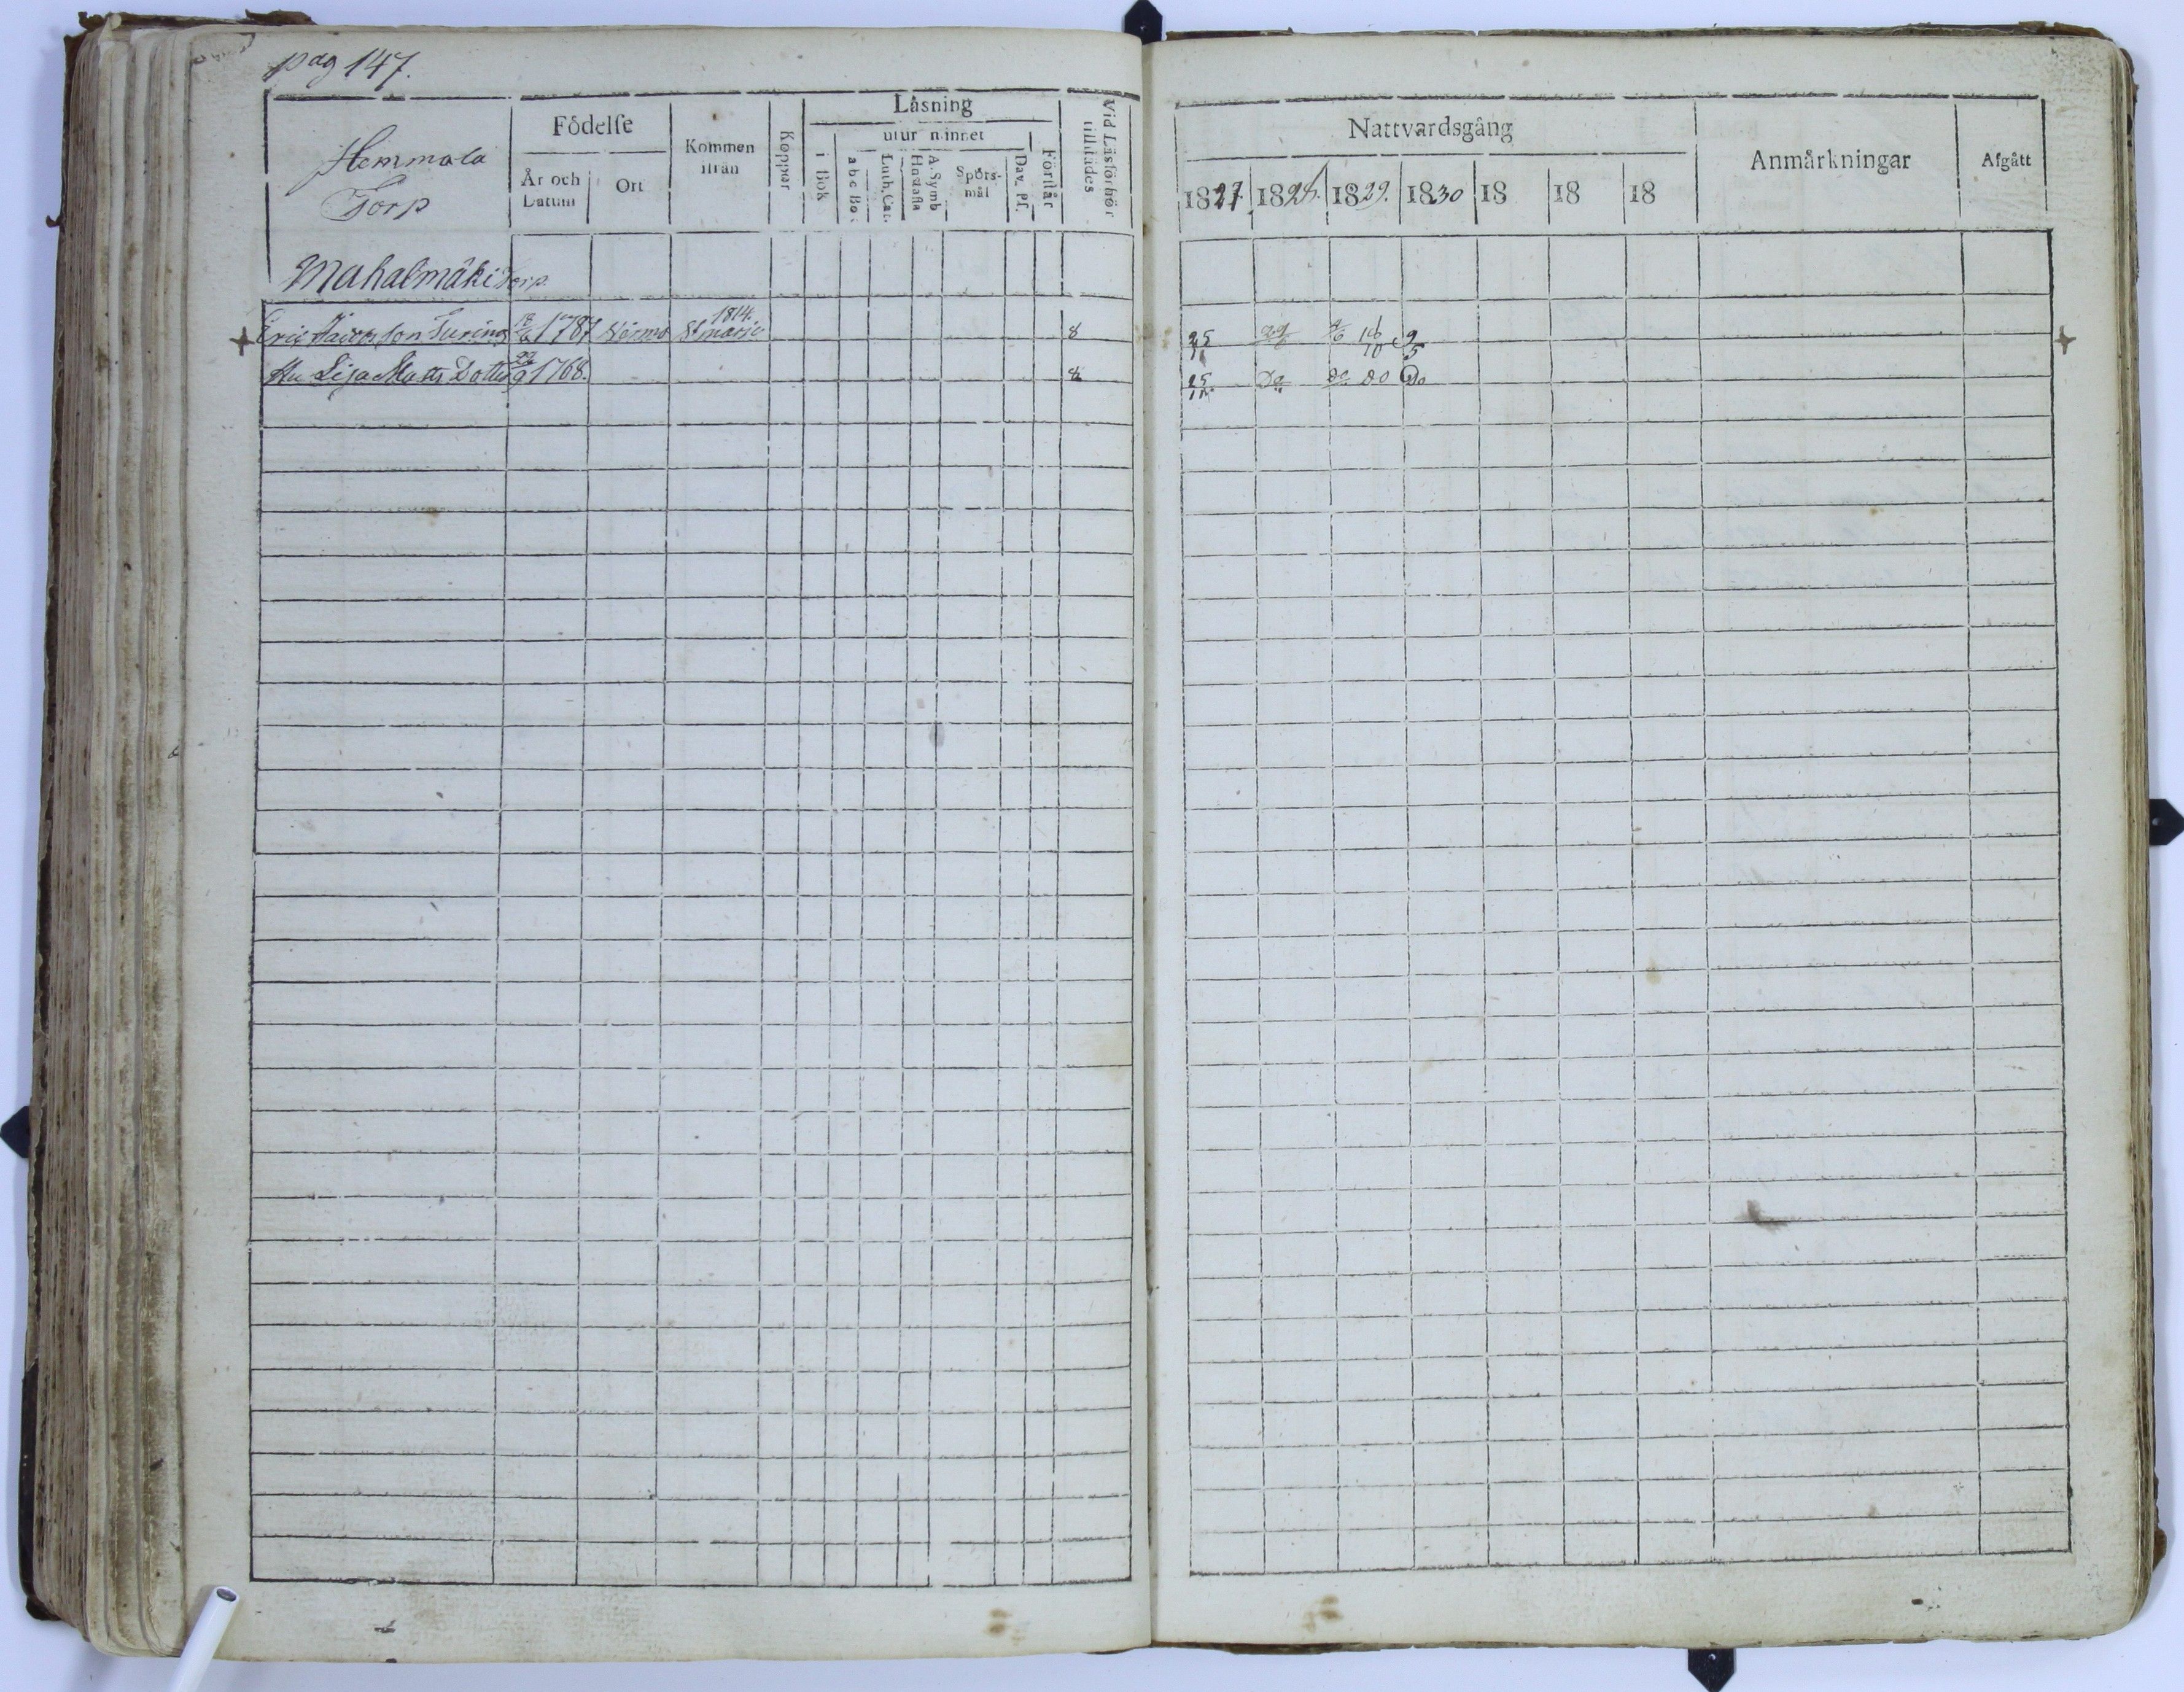 pag 147.
Hemmola
Torp
Födelse
År och
Datum
Ort
Kommen
ifrån
Koppor
Läsning
utur minnet
i Bok
abc Bok
Luth. Cat.
A. Symb
Hustafla
Spörs-
mål
Dav. Ps.
Förstår
Vid Läsförhör
tillstädes
Mahalmäki Torp
Eric Jacobson Turing 18/6 1787 Nårmo 1814. St marie 8
Hu Lisa Matts Dotter 22/9 1768. 8
Nattvardsgång
1827. 1828. 1829. 1830 18 18 18
Anmärkningar
Afgått
25/11 16/10 9/5
25/11 Do Do Do Do